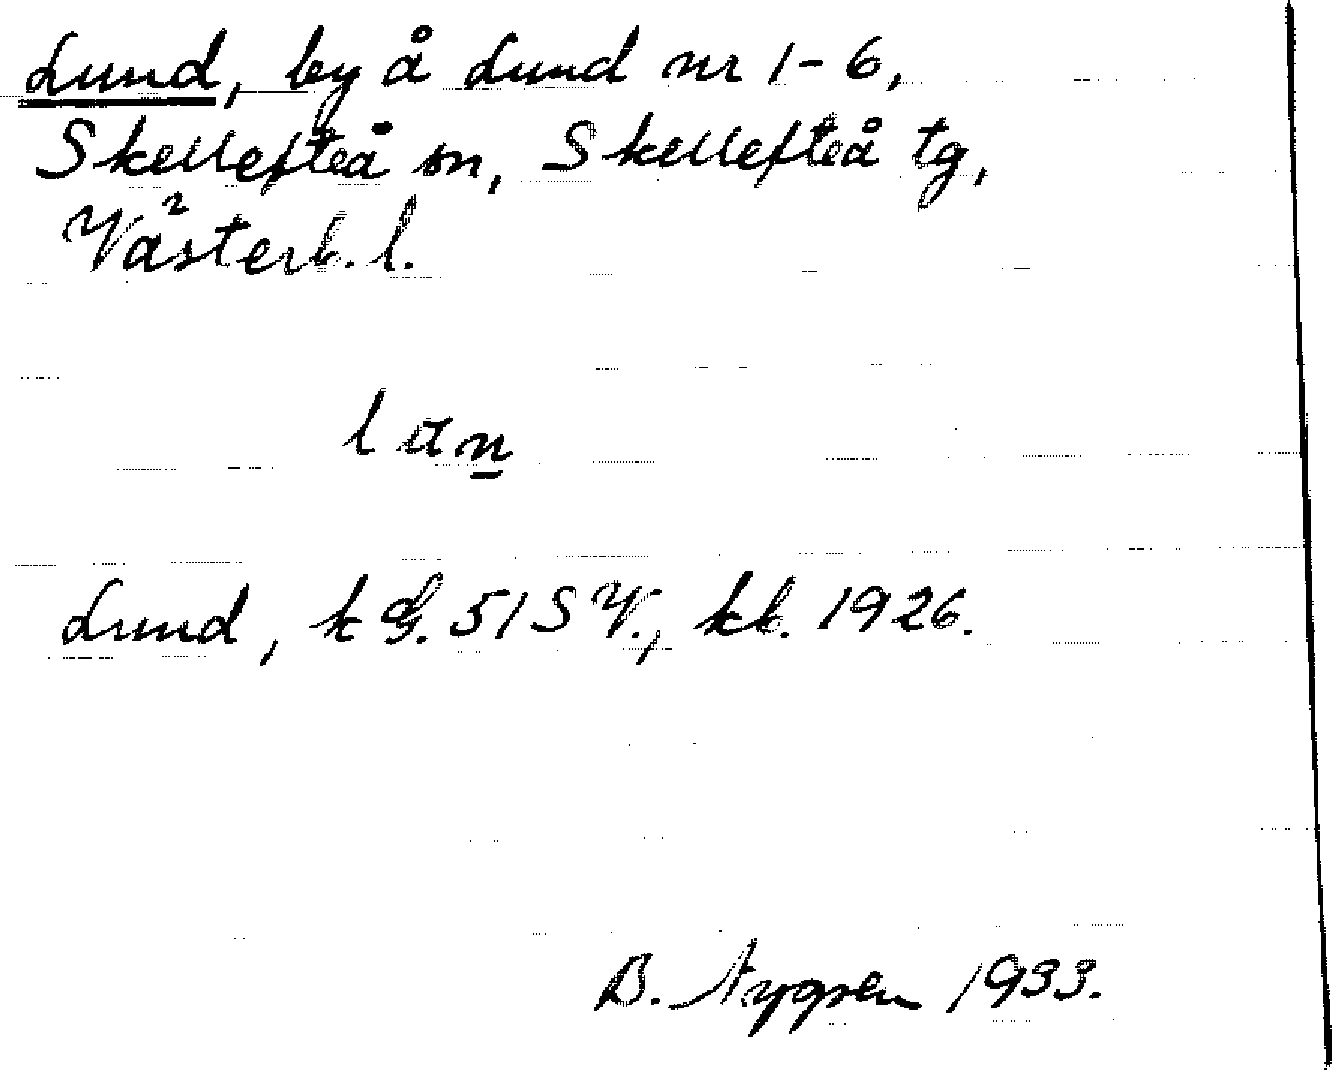 Lund, by å Lund nr 1-6,
Skellefteå sn, Skellefteå tg,
Västerb. l.
lan
Lund, k G. 51 S V., kb. 1926.
B. Nygren 1933.